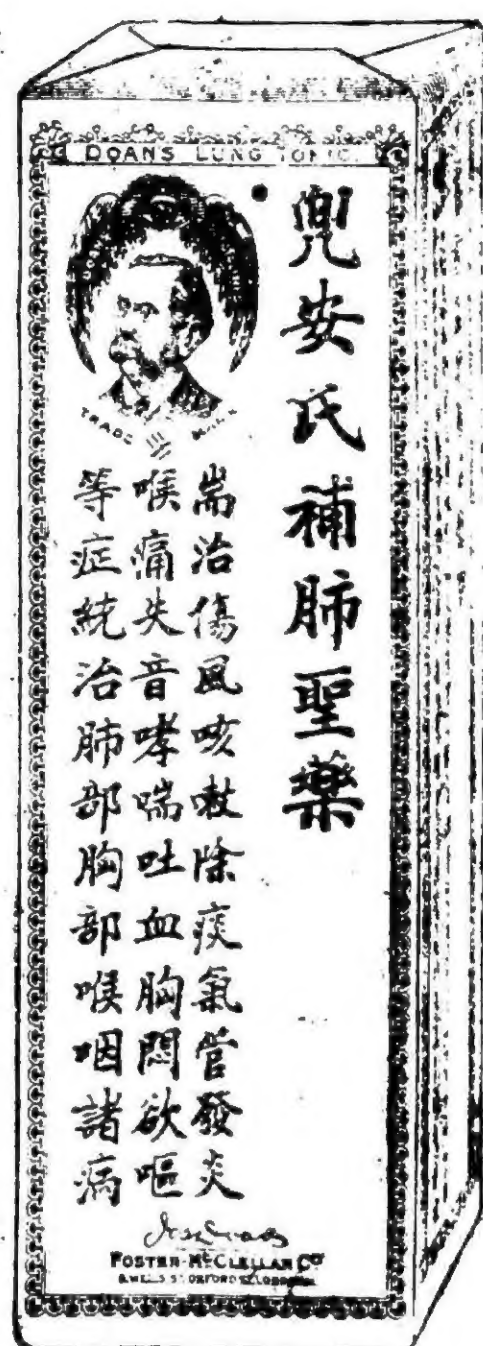 DOAN'S LUNG TONIC.
TRADE MARK
兜安氏補肺聖藥
耑治傷風咳嗽除痰氣管發炎
喉痛失音哮喘吐血胸悶欲嘔
等症統治肺部胸部喉咽諸病
FOSTER-McCLELLAN Co
8 WELLS ST OXFORD ST LONDON